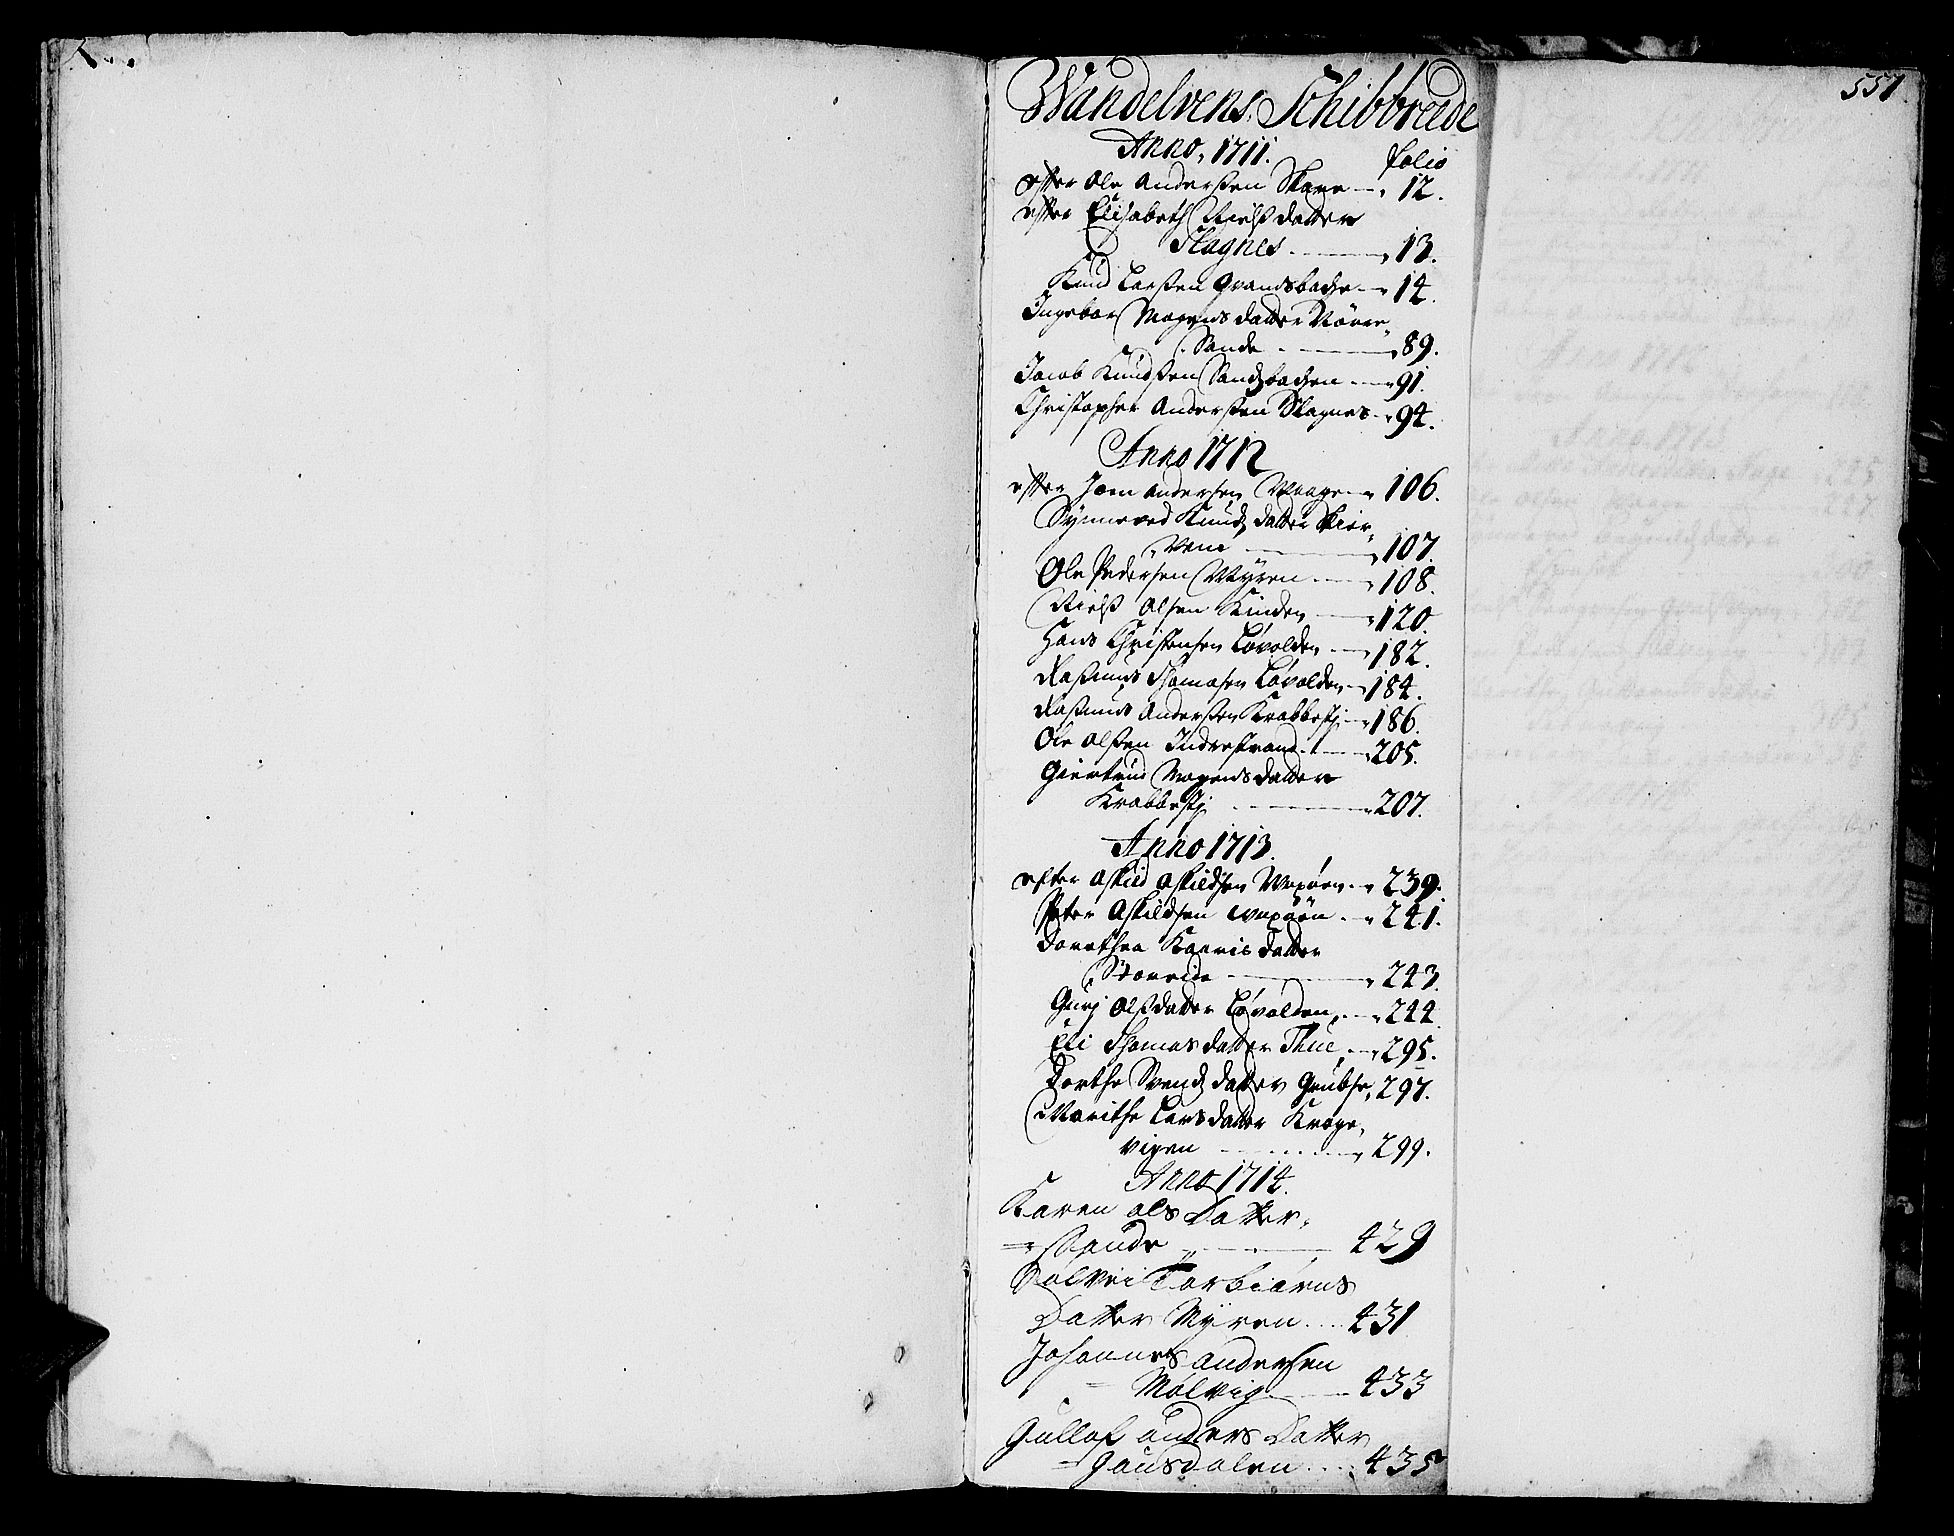 557
Wandelvens Schibbreede
Anno 1711. folio
efter Ole Anderßen Skare 12.
efter Elisabeth Nielß datter
Slagnes 13.
Knud Larßen Grandsbache 14.
Ingebor Mogens datter Nörre
Sande 89.
Jacob Knudßen Sandsbachen 91.
Christopher Anderßen Slagnes 94.
Anno 1712
efter Joen Andersen Waage 106.
Synneved Knuds datter Skier
Vene 107.
Ole Pedersen Myren 108.
Nielß Olsen Kinden 120.
Hans Christensen Løvolden 182.
Raßmus Thomasen Løvolden 184.
Raßmus Anderßen Krabbestj 186.
Ole Olßen Indrestrand 205.
Giertrud Mogens datter
Krabbestj 207.
Anno 1713.
efter Askild Askildsen Waxøen 239.
Peter Askildsen Waxøen 241.
Dorethea Kaaris datter
Storeide 243.
Gurj Olß datter Løvolden 244.
Eli Thomas datter Thue 295.
Dorthe Svends datter Grubse 297.
Marithe Lars datter Krage
vigen 299.
Anno 1714.
Karen ols Datter
Sande 429
Sølvei Torbiørns
Datter Myren 431
Johannes Andersen
Molvig 433
Gullof anders Datter
Gausdalen 435